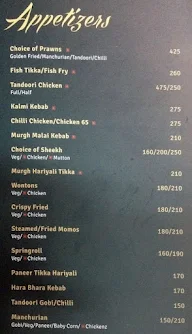 Appetizers
Choice of Prawns 425
Golden Fried/Manchurian/Tandoori/Chilli
Fish Tikka/Fish Fry 260
Tandoori Chicken 475/250
Full/Half
Kalmi Kebab 275
Chilli Chicken/Chicken 65 275
Murgh Malai Kebab 210
Choice of Sheekh 160/200/250
Veg/Chicken/Mutton
Murgh Hariyali Tikka 210
Wontons 180/210
Veg/Chicken
Crispy Fried 180/210
Veg/Chicken
Steamed/Fried Momos 180/210
Veg/Chicken
Springroll 160/190
Veg/Chicken
Paneer Tikka Hariyali 170
Hara Bhara Kebab 170
Tandoori Gobi/Chilli 150
Manchurian 150/210
Gobi/Veg/Paneer/Baby Corn/Chicken